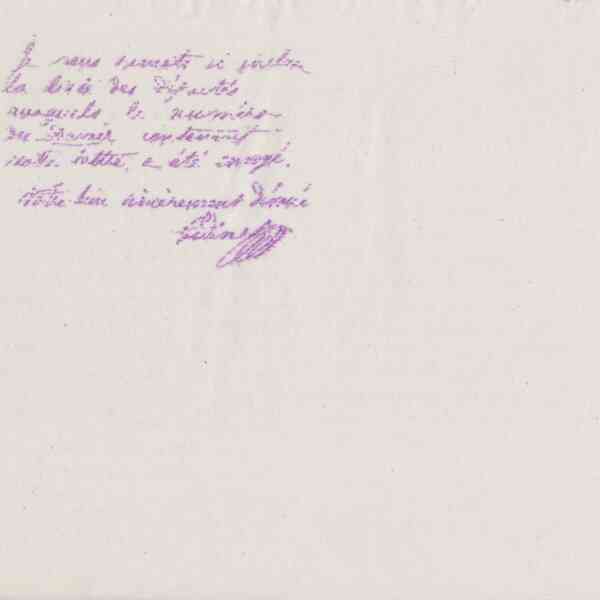 Je vous remets ci joint
la liste des députés
auxquels le numéro
du contenant
notre lettre, a été envoyé.
Votre bien sincèrement dévoué